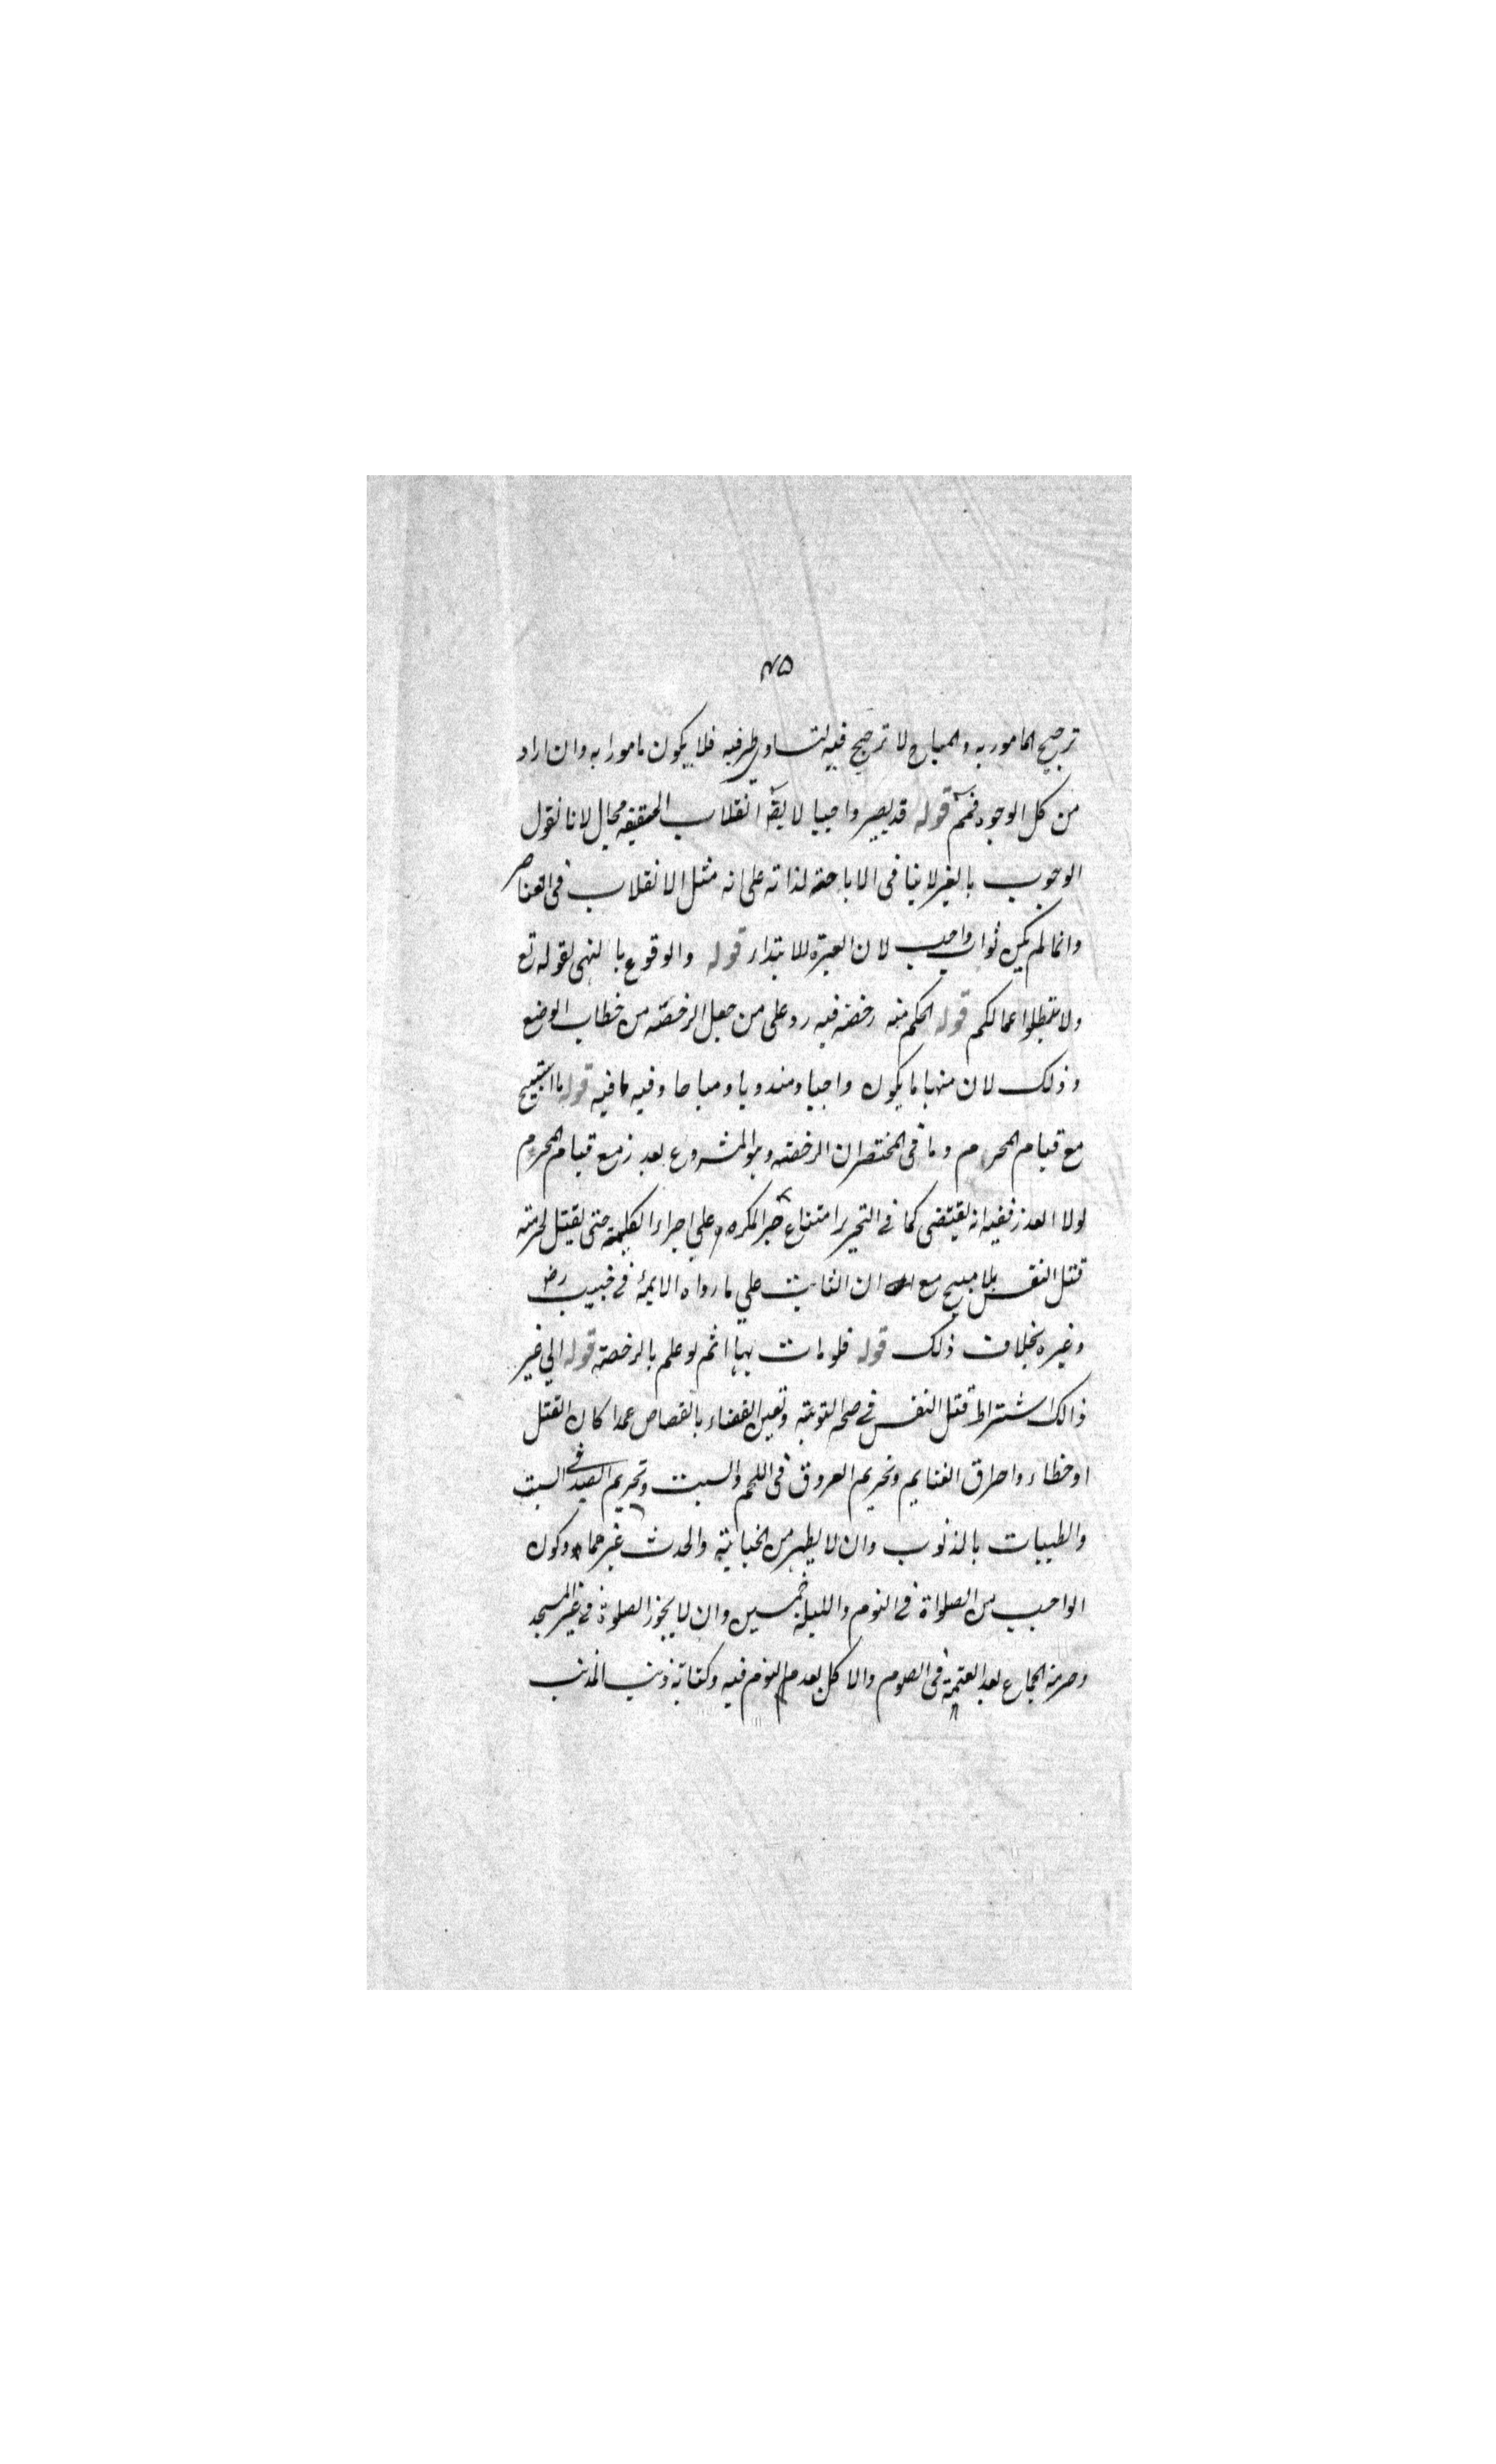 ٧٥
ترجيح المامور به والمباح لا ترجيح فيه لتساوي طرفيه فلا يكون مامورا به وان اراد
من كل الوجوه فمم قوله قد يصير واجبا لا يقه انقلاب الحقيقه محال لانا نقول
الوجوب بالغير لا ينافى الاباحة لذاته على انه مثل الانقلاب فى العناصر
وانما لم يكن ثواب واجب لان العبرة للابتداء قوله والوقوع بالنهى لقوله تع
ولا تبطلوا اعمالكم قوله الحكم منه رخصة فيه رد على من جعل الرخصة من خطاب الوضع
وذلك لان منها ما يكون واجبا ومندوبا ومباحا وفيه ما فيه قوله ما استبيح
مع قيام المحرم وما فى المختصر ان الرخصة وهو المشروع بعذر مع قيام المحرم
لولا العذر ففيه انه يقتضى كما في التحرير امتناع صبر المكره علي اجراء الكلمة حتى يقتل لحرمة
قتل النفس بلا مبيح مع ان الثابت علي ما رواه الايمة في خبيب رض
وغيره بخلاف ذلك قوله فلو مات بها اثم لو علم بالرخصة قوله الي غير
ذالك اشتراط قتل النفس في صحة التوبة وتعين القضاء بالقصاص عمدا كان القتل
او خطاء واحراق الغنايم وتحريم العروق فى اللحم والسبت وتحريم الصيد في السبت
والطيبات بالذنوب وان لا يطهر من الجنابة والحدث غير ماء وكون
الواجب من الصلواة في اليوم والليلة خمسين وان لا يجوز الصلوة في غير المسجد
وحرمة الجماع بعد العتمة فى الصوم والاكل بعد النوم فيه وكتابة ذنب المذنب